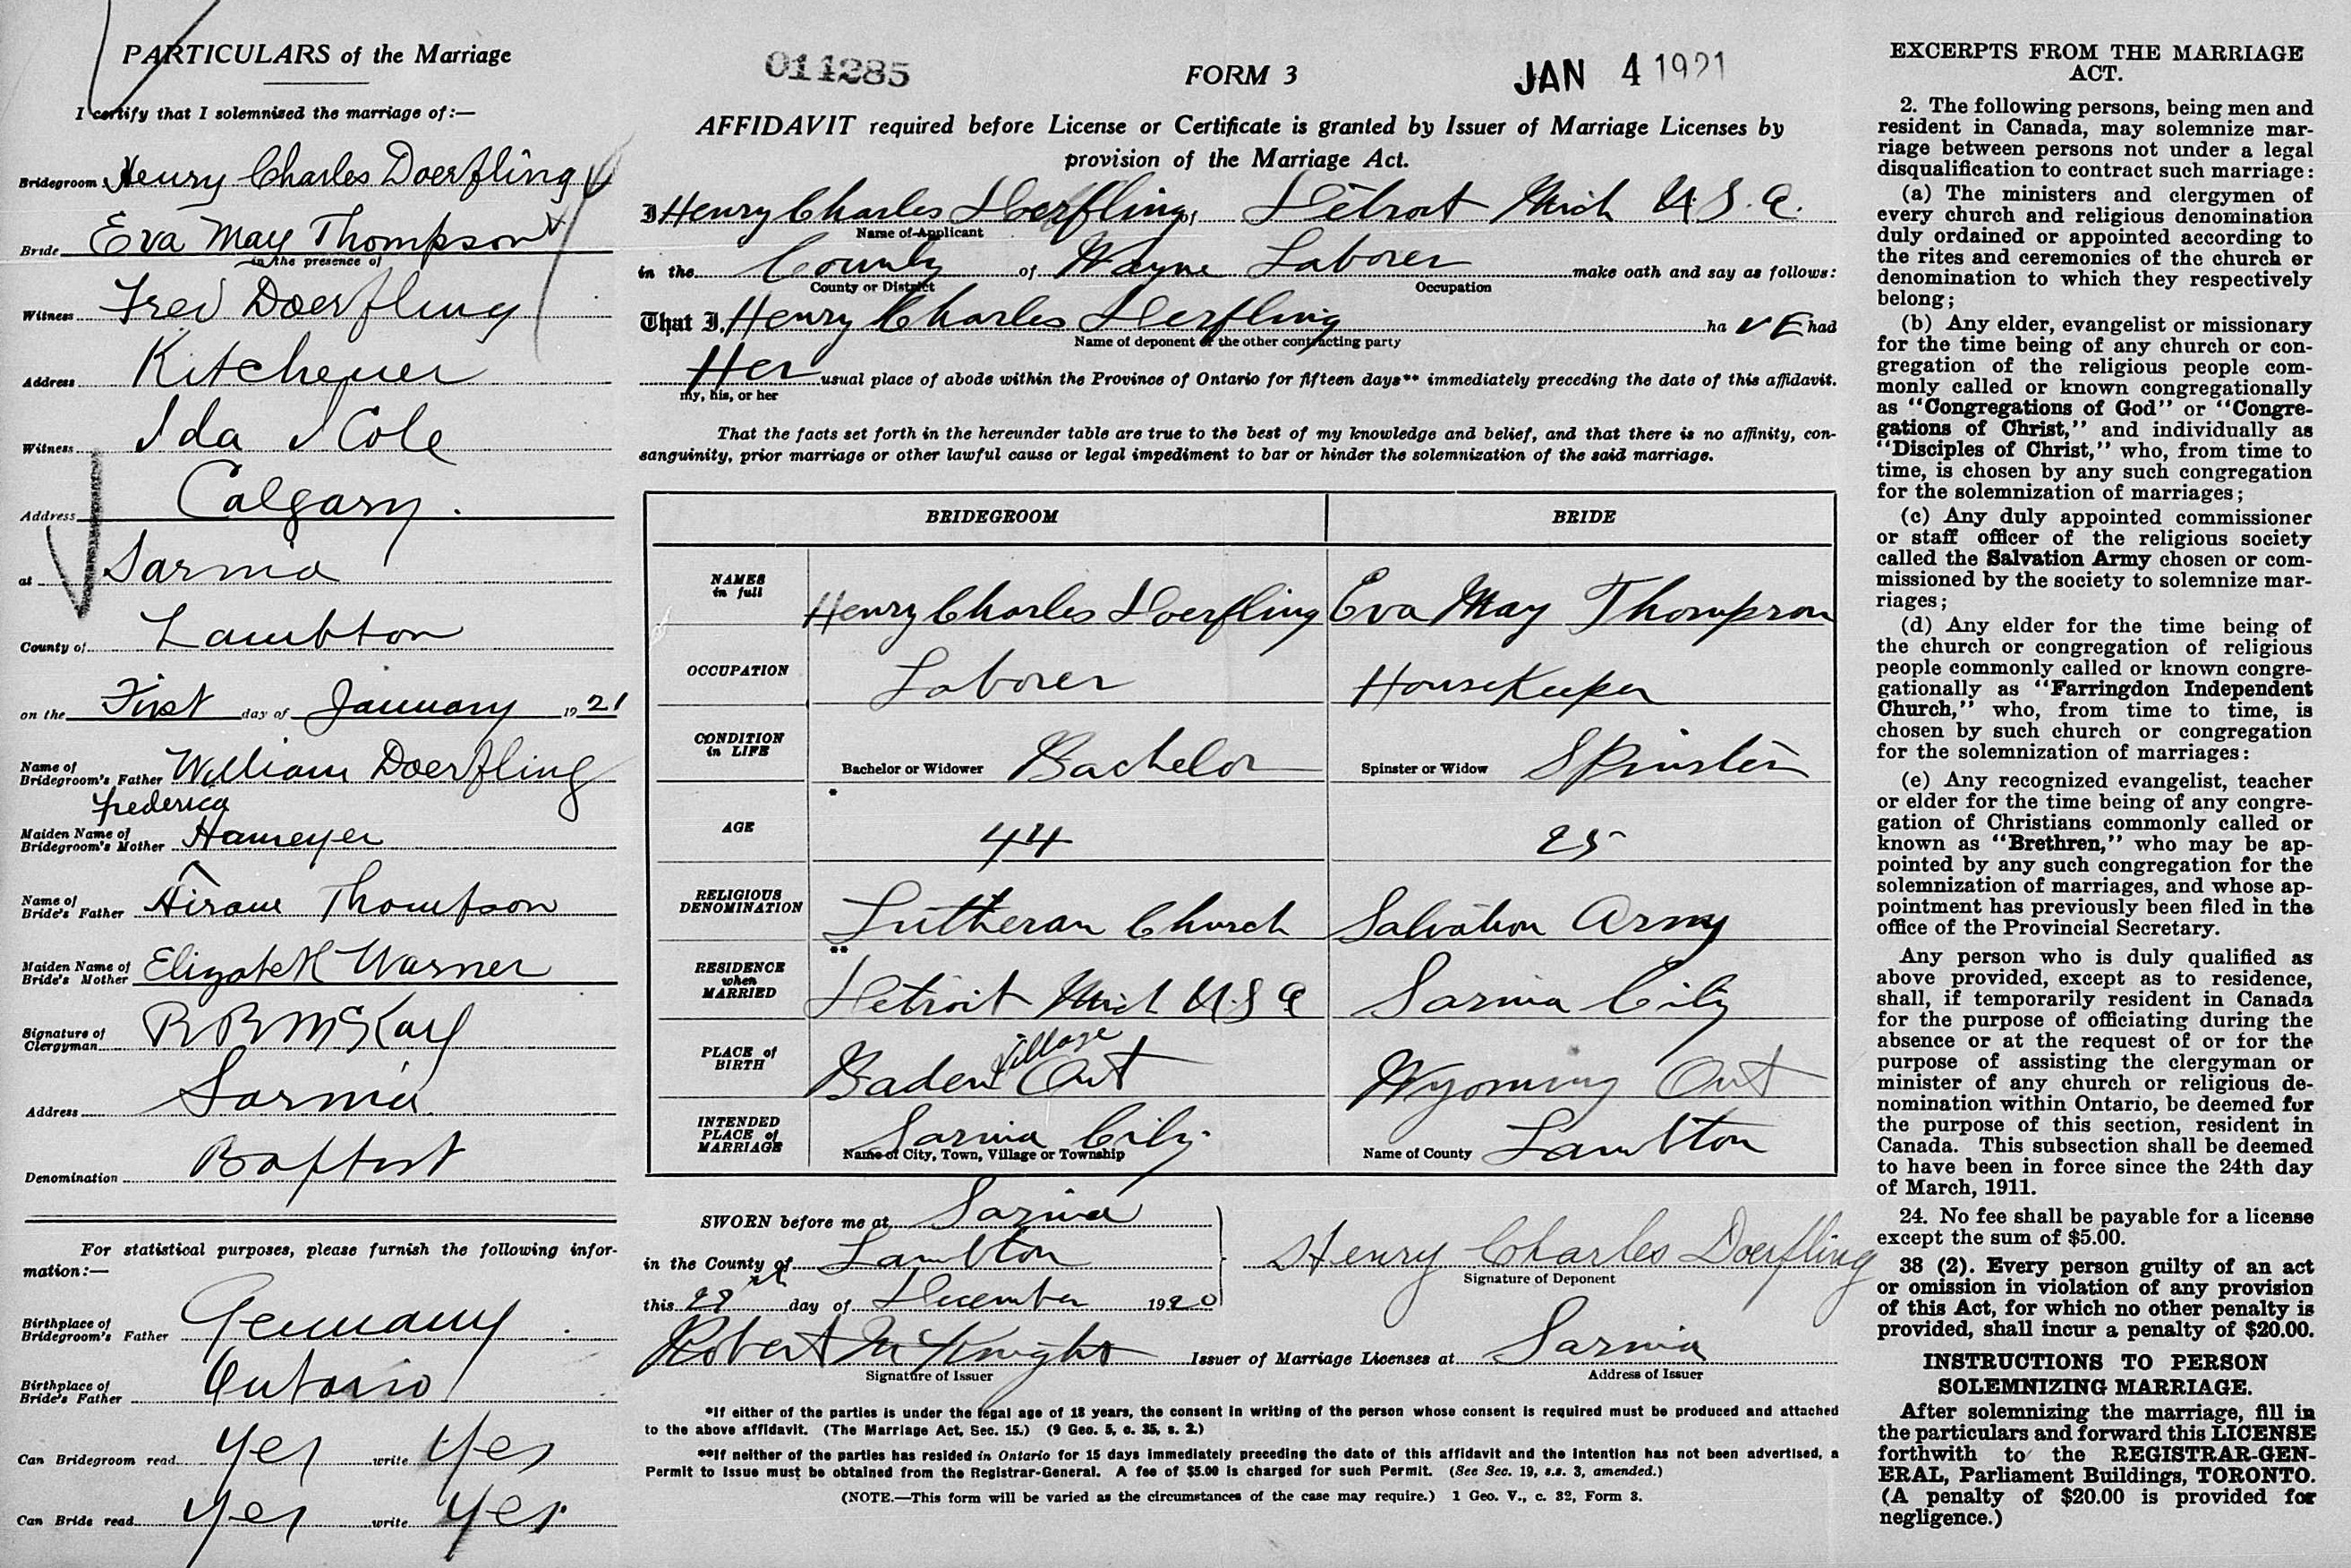 PARTICULARS of the Marriage
I certify that I solemnized the marriage of:—
Bridegroom Henry Charles Doerfling
Bride Eva May Thompson
in the presence of
Witness Fred Doerfling
Address Kitchener
Witness Ida I Cole
Address Calgary.
at Sarnia
County of Lambton
on the First day of January 1921
Name of Bridegroom's Father William Doerfling
Frederica
Maiden Name of Bridegroom's Mother Hameyer
Name of Bride's Father Hiram Thompson
Maiden Name of Bride's Mother Elizabeth Warner
Signature of Clergyman R B McKay
Address Sarnia
Denomination Baptist
For statistical purposes, please furnish the following infor-
mation:—
Birthplace of Bridegroom's Father Germany
Birthplace of Bride's Father Ontario
Can Bridegroom read yes write yes
Can Bride read yes write yes
011285 FORM 3 JAN 4 1921
AFFIDAVIT required before License or Certificate is granted by Issuer of Marriage Licenses by
provision of the Marriage Act.
I Henry Charles Doerfling of Detroit Mich U.S.A.
Name of Applicant
in the County of Wayne Laborer make oath and say as follows:
County or District Occupation
That I, Henry Charles Derfling ha vE had
Name of deponent or the other contracting party
Her usual place of abode within the Province of Ontario for fifteen days** immediately preceding the date of this affidavit.
my, his, or her
That the facts set forth in the hereunder table are true to the best of my knowledge and belief, and that there is no affinity, con-
sanguinity, prior marriage or other lawful cause or legal impediment to bar or hinder the solemnization of the said marriage.
BRIDEGROOM BRIDE
NAMES in full Henry Charles Doerfling Eva May Thompson
OCCUPATION Laborer HouseKeeper
CONDITION in LIFE Bachelor or Widower Bachelor Spinster or Widow Spinster
*
AGE 44 25
RELIGIOUS DENOMINATION Lutheran Church Salvation Army
**
RESIDENCE when MARRIED Detroit Mich U.S.A Sarnia City
PLACE of BIRTH Baden Village Ont Wyoming Ont
INTENDED PLACE of MARRIAGE Sarnia City. Lambton
Name of City, Town, Village or Township Name of County
SWORN before me at Sarnia
in the County of Lambton Henry Charles Doerfling
Signature of Deponent
this 28th day of December 1920
Robert McKnight Issuer of Marriage Licenses at Sarnia
Signature of Issuer Address of Issuer
*If either of the parties is under the legal age of 18 years, the consent in writing of the person whose consent is required must be produced and attached
to the above affidavit. (The Marriage Act, Sec. 15.) (9 Geo. 5, c. 35, s. 2.)
**If neither of the parties has resided in Ontario for 15 days immediately preceding the date of this affidavit and the intention has not been advertised, a
Permit to issue must be obtained from the Registrar-General. A fee of $5.00 is charged for such Permit. (See Sec. 19, s.s. 3, amended.)
(NOTE.—This form will be varied as the circumstances of the case may require.) 1 Geo. V., c. 32, Form 3.
EXCERPTS FROM THE MARRIAGE
ACT.
2. The following persons, being men and
resident in Canada, may solemnize mar-
riage between persons not under a legal
disqualification to contract such marriage:
(a) The ministers and clergymen of
every church and religious denomination
duly ordained or appointed according to
the rites and ceremonies of the church or
denomination to which they respectively
belong;
(b) Any elder, evangelist or missionary
for the time being of any church or con-
gregation of the religious people com-
monly called or known congregationally
as "Congregations of God" or "Congre-
gations of Christ," and individually as
"Disciples of Christ," who, from time to
time, is chosen by any such congregation
for the solemnization of marriages;
(c) Any duly appointed commissioner
or staff officer of the religious society
called the Salvation Army chosen or com-
missioned by the society to solemnize mar-
riages;
(d) Any elder for the time being of
the church or congregation of religious
people commonly called or known congre-
gationally as "Farringdon Independent
Church," who, from time to time, is
chosen by such church or congregation
for the solemnization of marriages:
(e) Any recognized evangelist, teacher
or elder for the time being of any congre-
gation of Christians commonly called or
known as "Brethren," who may be ap-
pointed by any such congregation for the
solemnization of marriages, and whose ap-
pointment has previously been filed in the
office of the Provincial Secretary.
Any person who is duly qualified as
above provided, except as to residence,
shall, if temporarily resident in Canada
for the purpose of officiating during the
absence or at the request of or for the
purpose of assisting the clergyman or
minister of any church or religious de-
nomination within Ontario, be deemed for
the purpose of this section, resident in
Canada. This subsection shall be deemed
to have been in force since the 24th day
of March, 1911.
24. No fee shall be payable for a license
except the sum of $5.00.
38 (2). Every person guilty of an act
or omission in violation of any provision
of this Act, for which no other penalty is
provided, shall incur a penalty of $20.00.
INSTRUCTIONS TO PERSON
SOLEMNIZING MARRIAGE.
After solemnizing the marriage, fill in
the particulars and forward this LICENSE
forthwith to the REGISTRAR-GEN-
ERAL, Parliament Buildings, TORONTO.
(A penalty of $20.00 is provided for
negligence.)